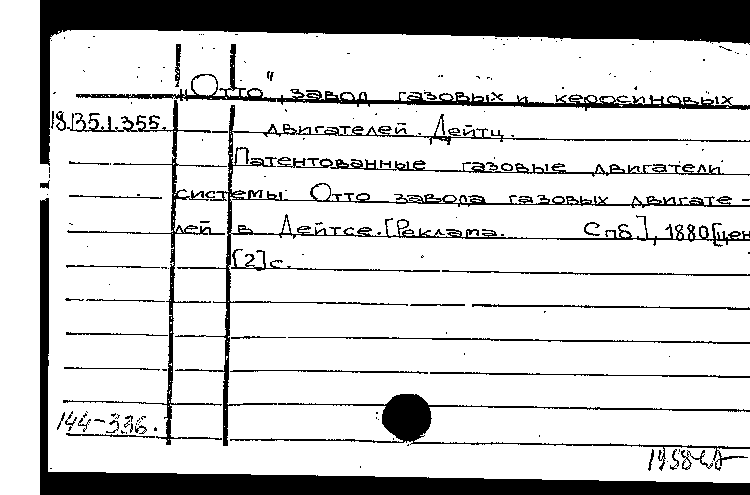 „Отто", завод газовых и керосиновых
18.135.1.355. двигателей. Дейтц.
Патентованные газовые двигатели
системы Отто завода газовых двигате-
лей в Дейтсе. [Реклама. СПб], 1880 [цен
[2] с.
144-336.
1958